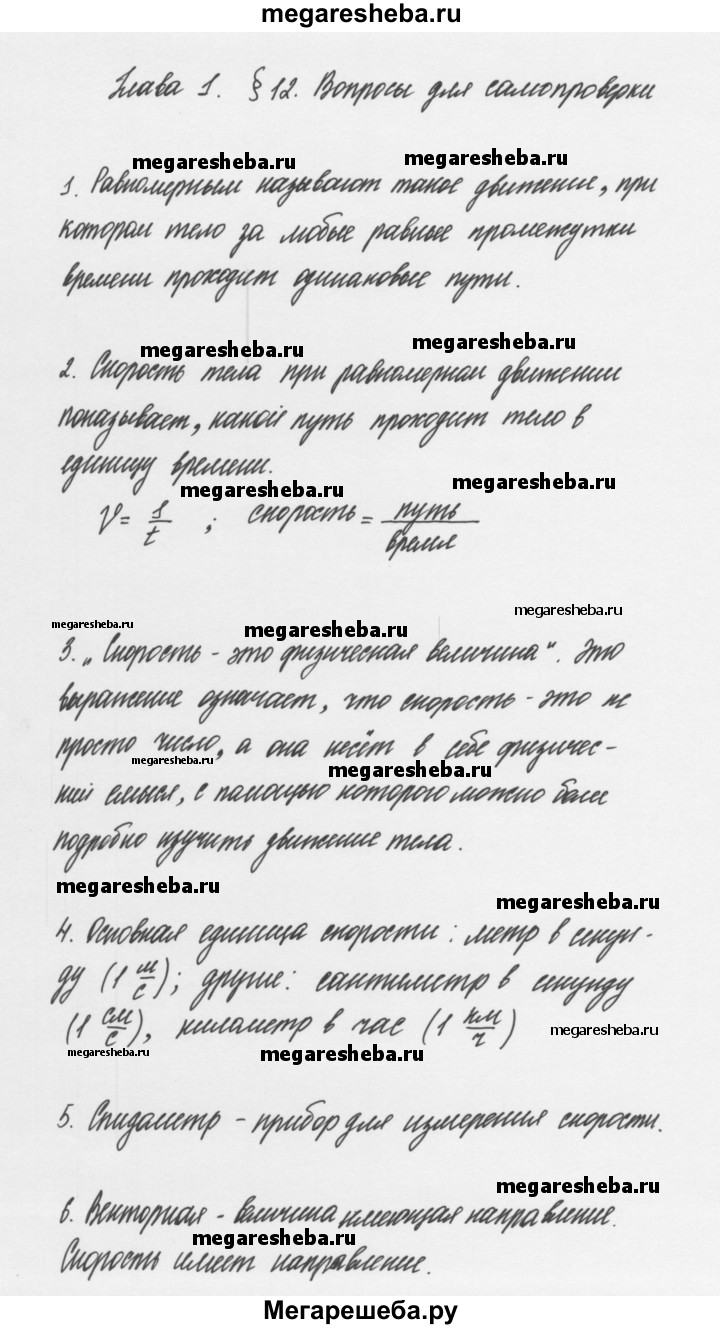 megaresheba.ru
Глава 1. § 12. Вопросы для самопроверки
megaresheba.ru megaresheba.ru
1. Равномерным называют такое движение, при
котором тело за любые равные промежутки
времени проходит одинаковые пути.
megaresheba.ru megaresheba.ru
2. Скорость тела при равномерном движении
показывает, какой путь проходит тело в
единицу времени.
megaresheba.ru megaresheba.ru
V = s/t ; скорость = путь/время
megaresheba.ru megaresheba.ru megaresheba.ru
3. „Скорость - это физическая величина“. Это
выражение означает, что скорость - это не
просто число, а она несёт в себе физичес-
megaresheba.ru megaresheba.ru
кий смысл, с помощью которого можно более
подробно изучить движение тела.
megaresheba.ru megaresheba.ru
4. Основная единица скорости: метр в секун-
ду (1 м/с); другие: сантиметр в секунду
(1 см/с), километр в час (1 км/ч)
megaresheba.ru megaresheba.ru megaresheba.ru
5. Спидометр - прибор для измерения скорости.
megaresheba.ru
6. Векторная - величина имеющая направление.
megaresheba.ru
Скорость имеет направление.
Мегарешеба.ру